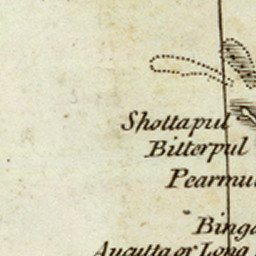 Shottapul
Bitterpul
Pearmu
Binga
Aucutta or Long